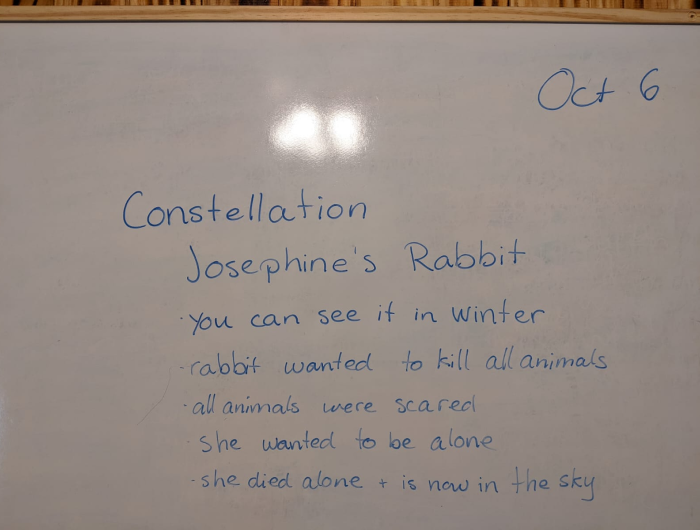 Oct 6
Constellation
Josephine's Rabbit
·you can see it in winter
·rabbit wanted to kill all animals
·all animals were scared
·she wanted to be alone
·she died alone + is now in the sky